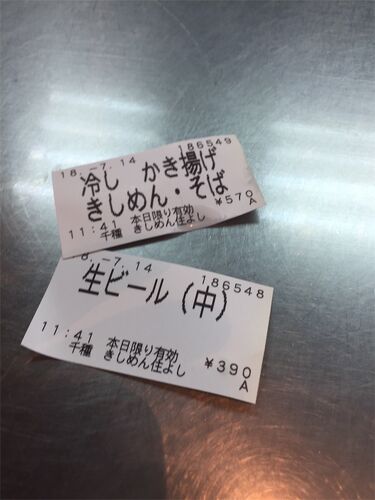 18.-7.14 186549
冷し かき揚げ
きしめん・そば
¥570
A
11:41 本日限り有効
千種 きしめん住よし
8.-7.14 186548
生ビール(中)
11:41 本日限り有効
千種 きしめん住よし
¥390
A